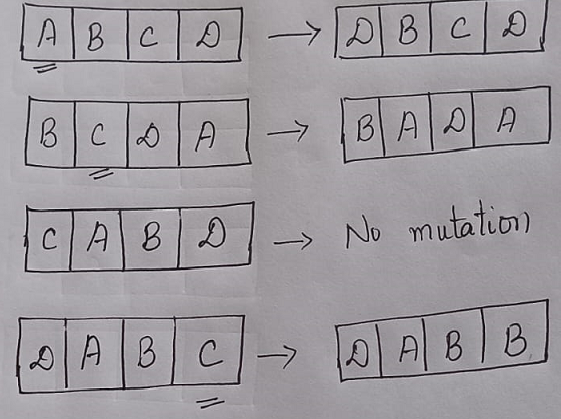 A B C D → D B C D
B C D A → B A D A
C A B D → No mutation
D A B C → D A B B